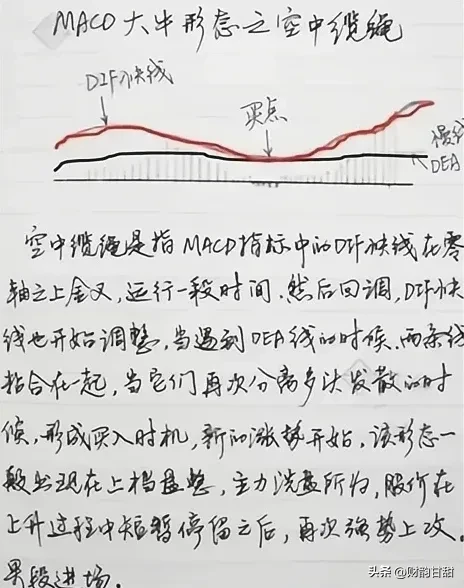 MACD大牛形态之空中缆绳
DIF快线
买点
慢线
DEA
空中缆绳是指MACD指标中的DIF快线在零
轴之上金叉,运行一段时间.然后回调,DIF快
线也开始调整,当遇到DEA线的时候.两条线
粘合在一起,当它们再次分离多头发散的时
候,形成买入时机,新的涨势开始,该形态一
般出现在上档盘整,主力洗盘所为,股价在
上升过程中短暂停留之后,再次强势上攻.
果段进场.
头条 @财韵甘甜